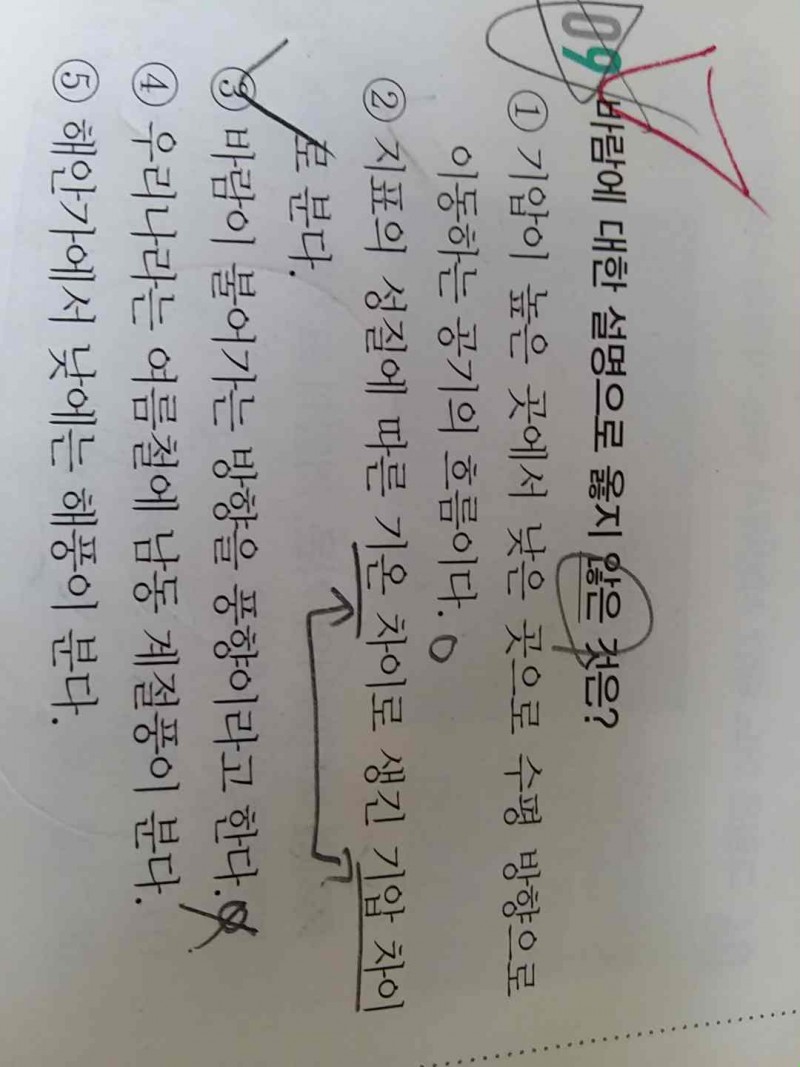 09 바람에 대한 설명으로 옳지 않은 것은?
① 기압이 높은 곳에서 낮은 곳으로 수평 방향으로
이동하는 공기의 흐름이다.
② 지표의 성질에 따른 기온 차이로 생긴 기압 차이
로 분다.
③ 바람이 불어가는 방향을 풍향이라고 한다.
④ 우리나라는 여름철에 남동 계절풍이 분다.
⑤ 해안가에서 낮에는 해풍이 분다.